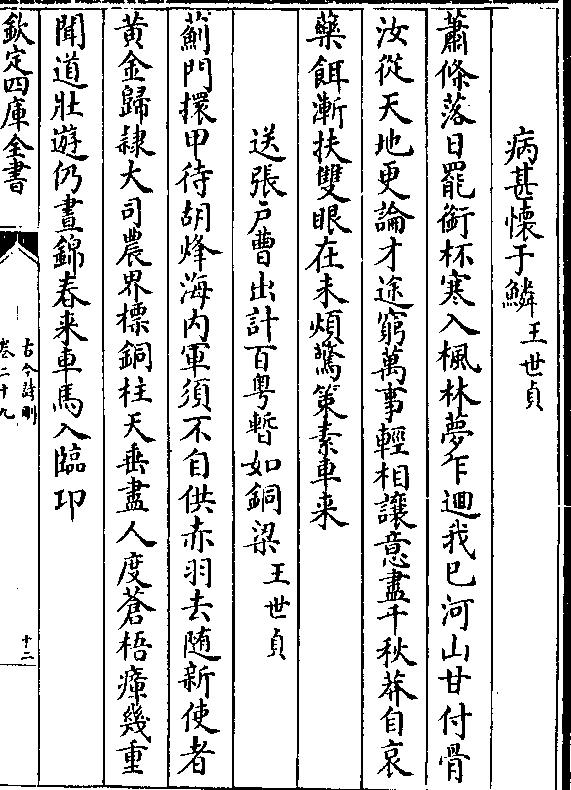 病甚懷于鱗 王世貞
蕭條落日罷銜杯寒入楓林夢乍迴我已河山甘付骨
汝從天地更論才途窮萬事輕相讓意盡千秋莽自哀
藥餌漸扶雙眼在未煩驚策素車来
送張户曹出計百粤暫如銅梁 王世貞
薊門擐甲待胡烽海内軍須不自供赤羽去随新使者
黄金歸隷大司農界標銅柱天垂盡人度蒼梧瘴幾重
聞道壮遊仍晝錦春来車馬入臨邛
欽定四庫全書
古今詩刪
卷二十九
十二